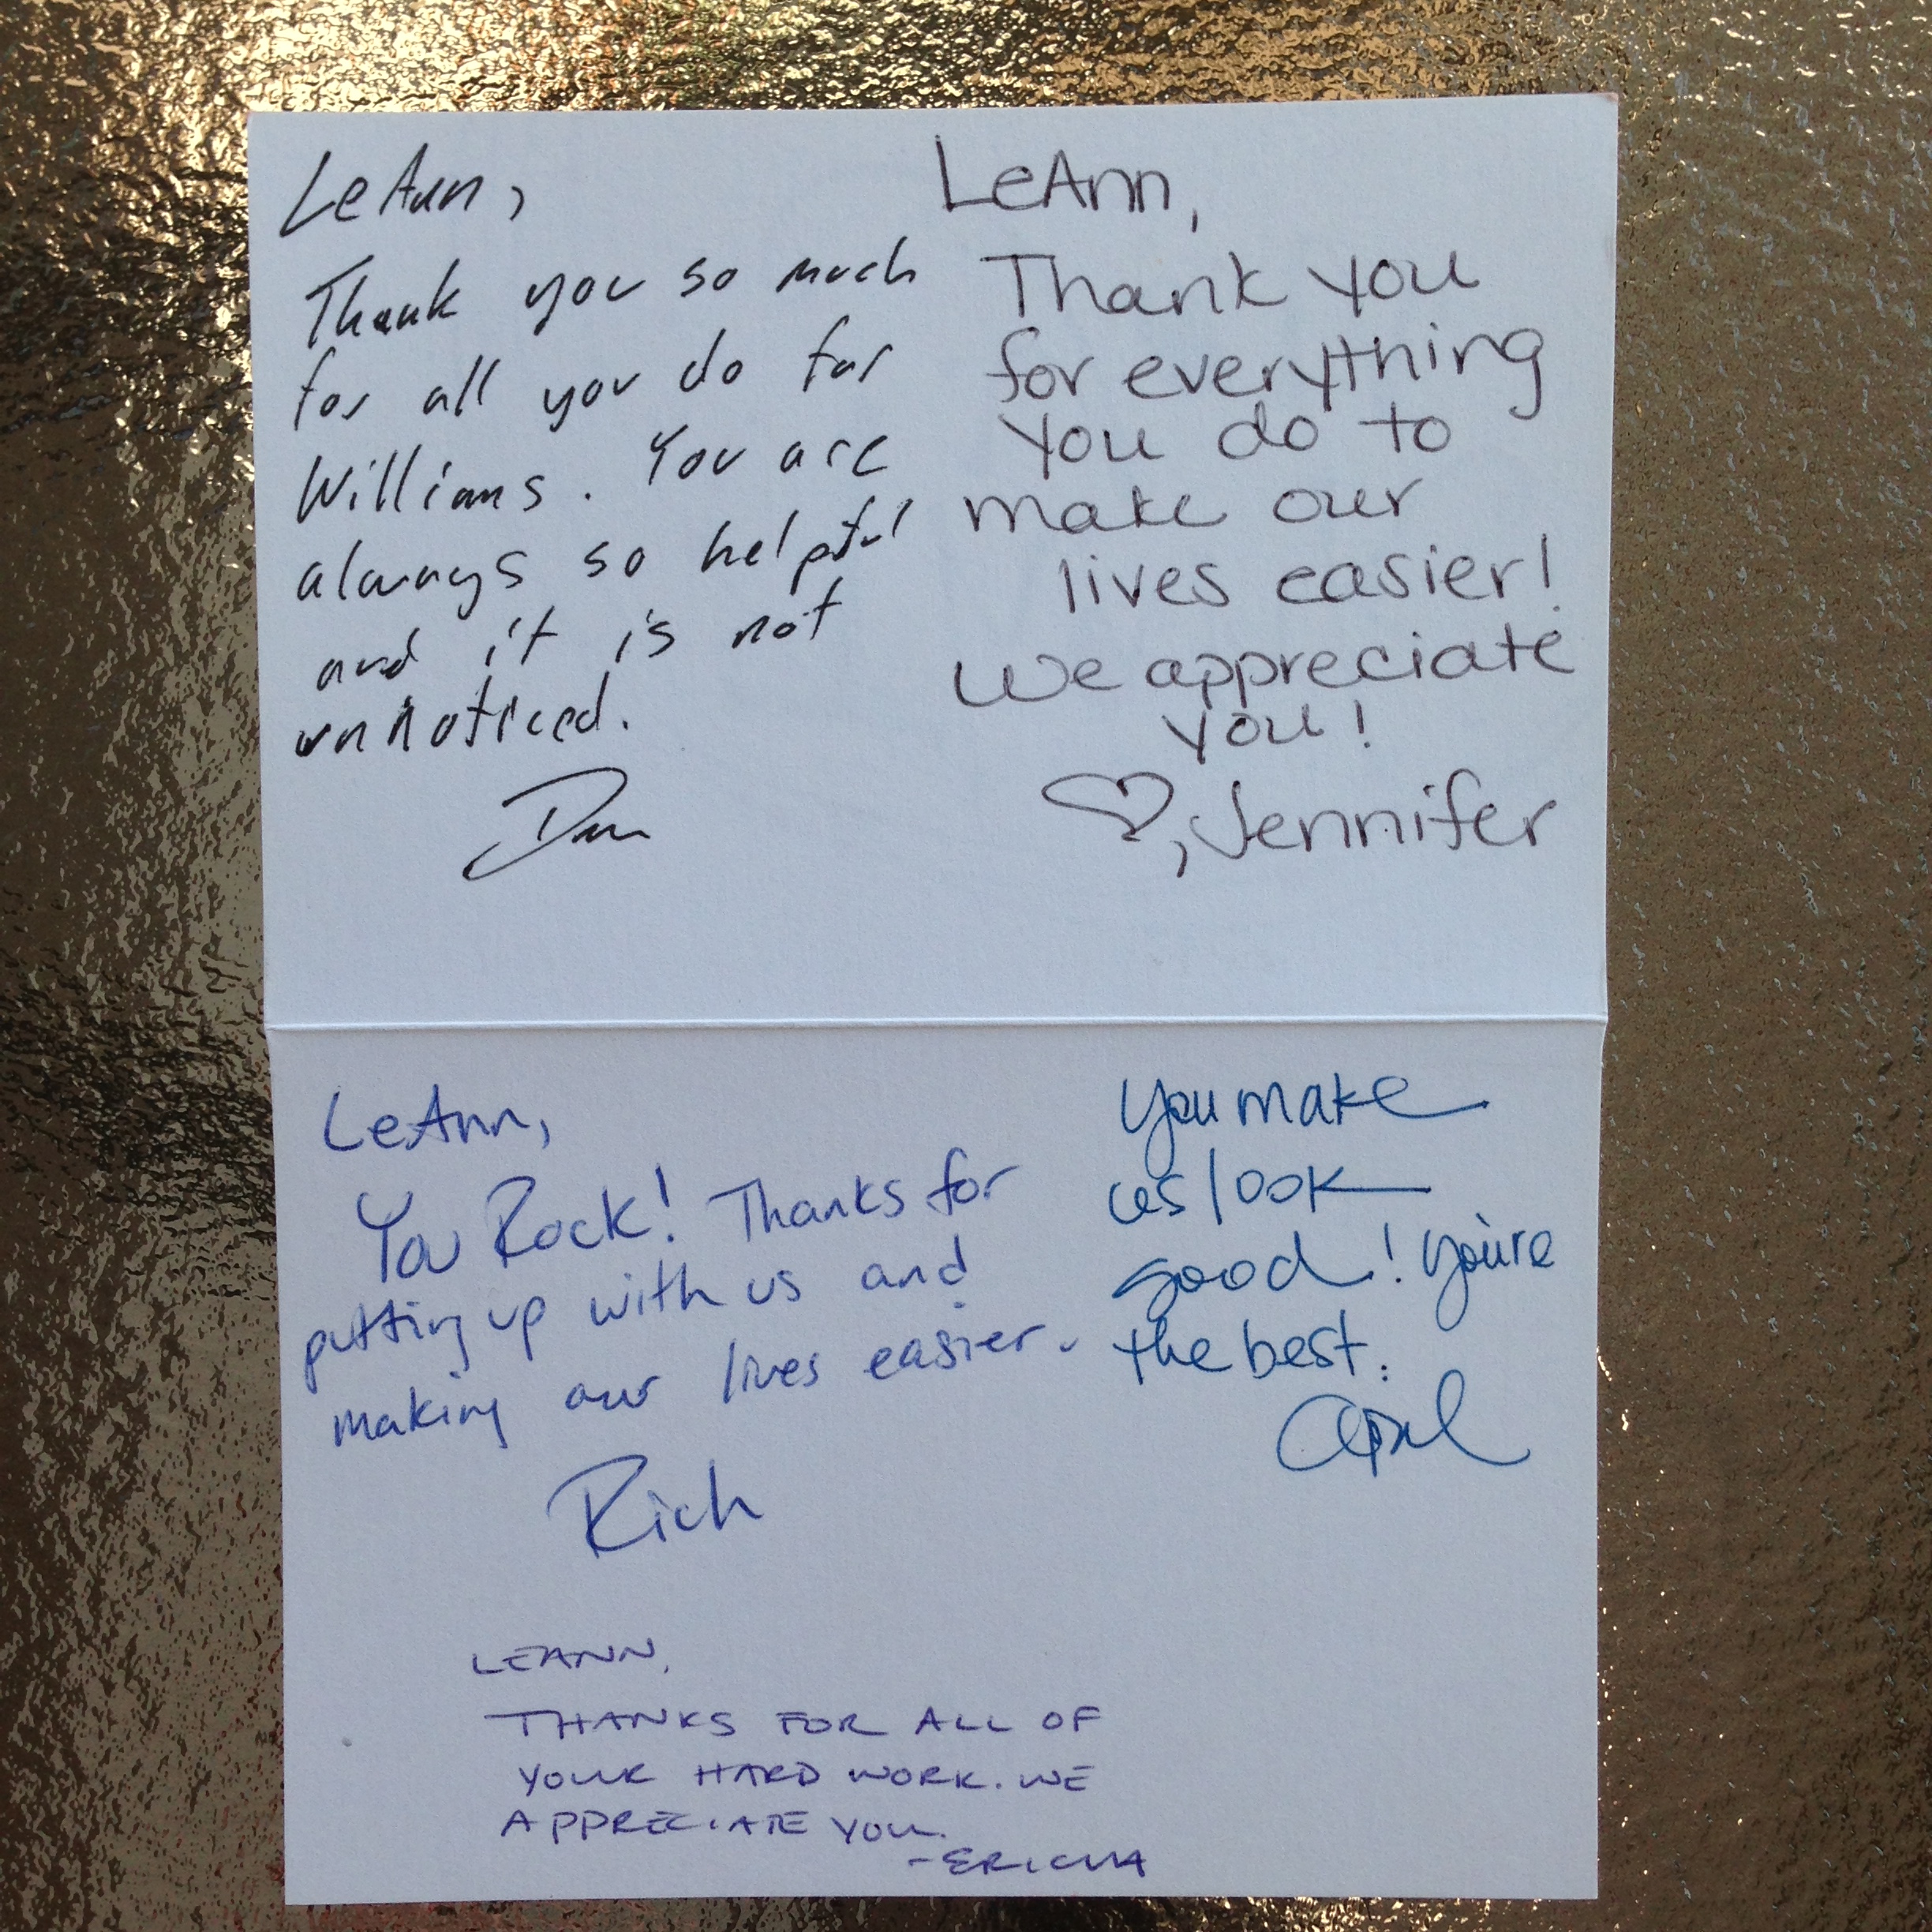 LeAnn,
Thank you so much
for all you do for
Williams. You are
always so helpful
and it is not
unnoticed.
Dan
LeAnn,
Thank you
for everything
you do to
make our
lives easier!
We appreciate
you!
♡, Jennifer
LeAnn,
You Rock! Thanks for
putting up with us and
making our lives easier.
Rich
You make
us look
good! You're
the best.
April
LEANN,
THANKS FOR ALL OF
YOUR HARD WORK. WE
APPRECIATE YOU.
-ERICHA